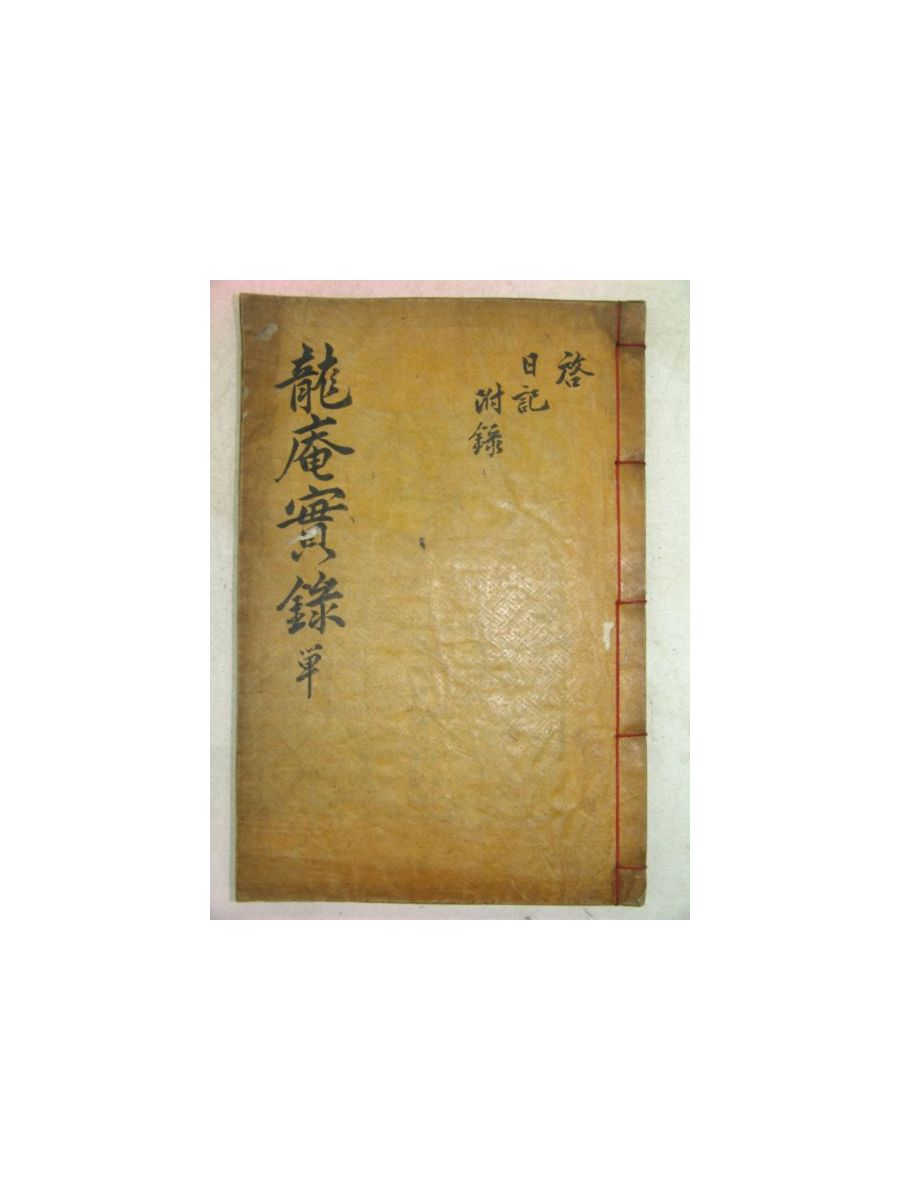 啓
日記
附錄
龍庵實錄 単